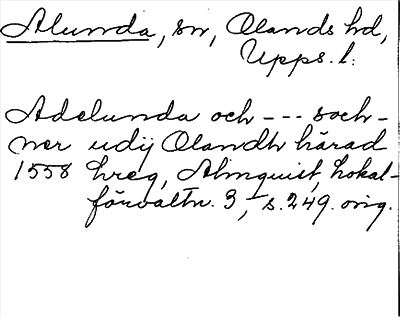 Alunda, sn, Olands hd,
Upps. l:
Adelunda och --- soch-
ner udij Olandh härad
1558 hreg, Almquist, Lokal-
förvaltn. 3, s. 249. orig.